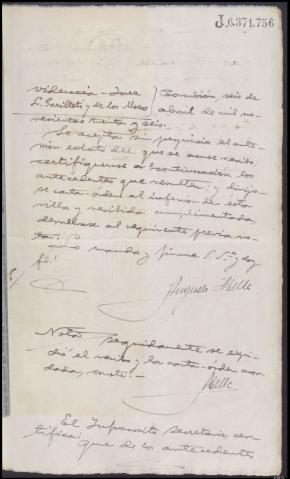 J.6.371.756
videncia - Juez } Corcubión, seis de
Sr. Garilleti y de los Mozos } abril de mil no-
vecientos treinta y seis.
Se acepta sin perjuicio el ante-
rior exhorto del que se acuse recibo;
certifíquense a continuación los
antecedentes que resulten; y dirija-
se carta-orden al inferior de esta
villa y recibida cumplimentada
devuélvase al requirente previa no-
ta.
Lo manda y firma S. Sª. y doy
fé.
Nota Seguidamente se expi-
dió el recibo y la carta-orden acor-
dada, conste.-
El Infrascrito secretario cer-
tifica: que de los antecedentes